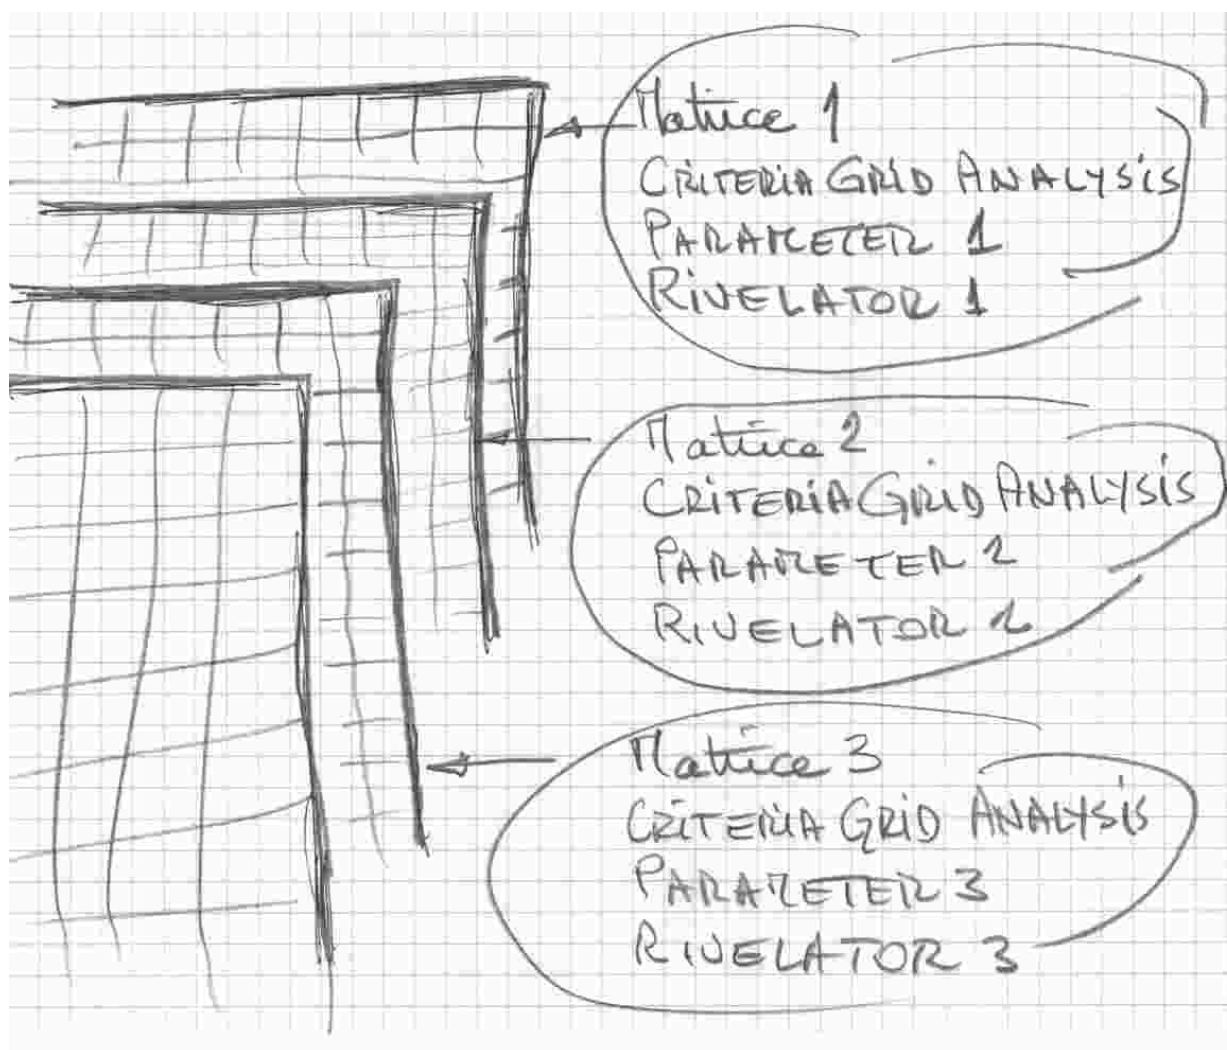 Matrice 1
CRITERIA GRID ANALYSIS
PARAMETER 1
RIVELATOR 1
Matrice 2
CRITERIA GRID ANALYSIS
PARAMETER 2
RIVELATOR 2
Matrice 3
CRITERIA GRID ANALYSIS
PARAMETER 3
RIVELATOR 3